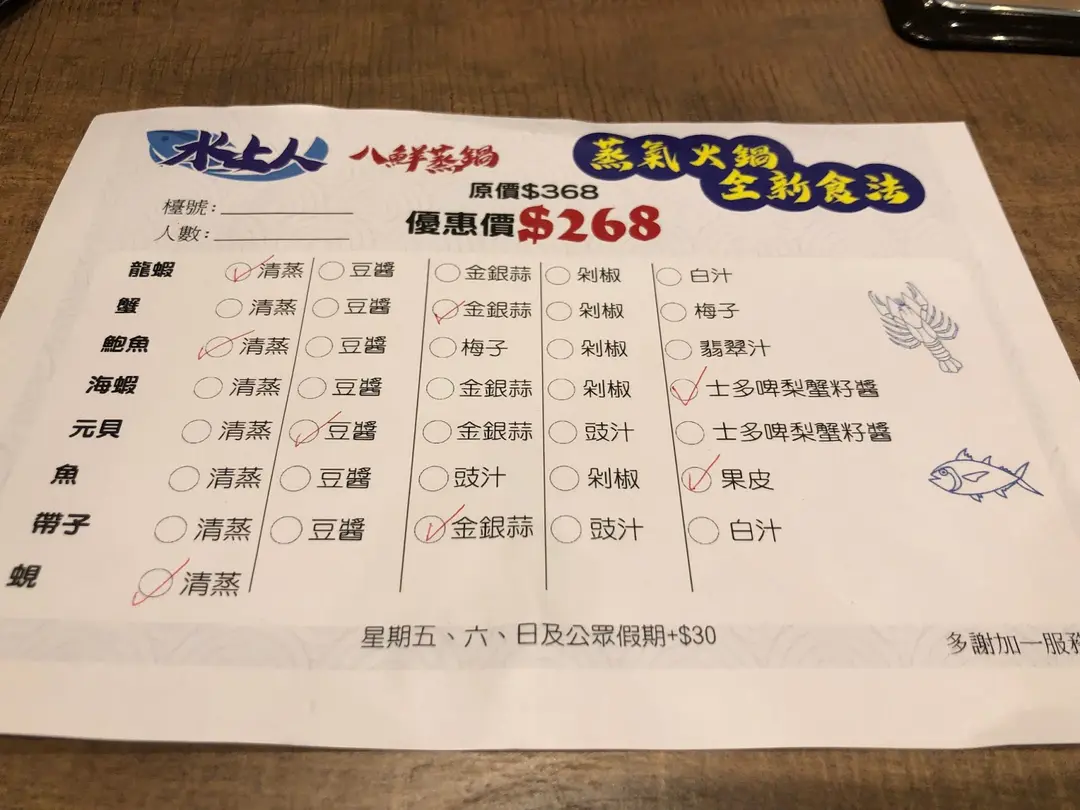 水上人 八鮮蒸鍋 蒸氣火鍋
全新食法
原價$368
優惠價$268
檯號:
人數:
龍蝦 清蒸 豆醬 金銀蒜 剁椒 白汁
蟹 清蒸 豆醬 金銀蒜 剁椒 梅子
鮑魚 清蒸 豆醬 梅子 剁椒 翡翠汁
海蝦 清蒸 豆醬 金銀蒜 剁椒 士多啤梨蟹籽醬
元貝 清蒸 豆醬 金銀蒜 豉汁 士多啤梨蟹籽醬
魚 清蒸 豆醬 豉汁 剁椒 果皮
帶子 清蒸 豆醬 金銀蒜 豉汁 白汁
蜆 清蒸
星期五、六、日及公眾假期+$30
多謝加一服務